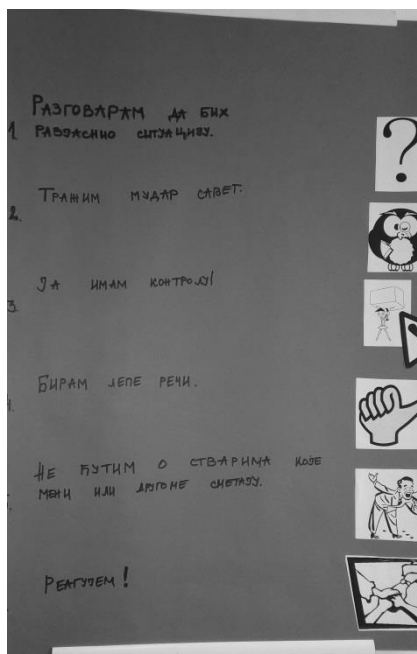 1. РАЗГОВАРАМ ДА БИХ
РАЗЈАСНИО СИТУАЦИЈУ.
2. ТРАЖИМ МУДАР САВЕТ.
3. ЈА ИМАМ КОНТРОЛУ!
4. БИРАМ ЛЕПЕ РЕЧИ.
5. НЕ ЋУТИМ О СТВАРИМА КОЈЕ
МЕНИ ИЛИ ДРУГОМЕ СМЕТАЈУ.
РЕАГУЈЕМ!
?